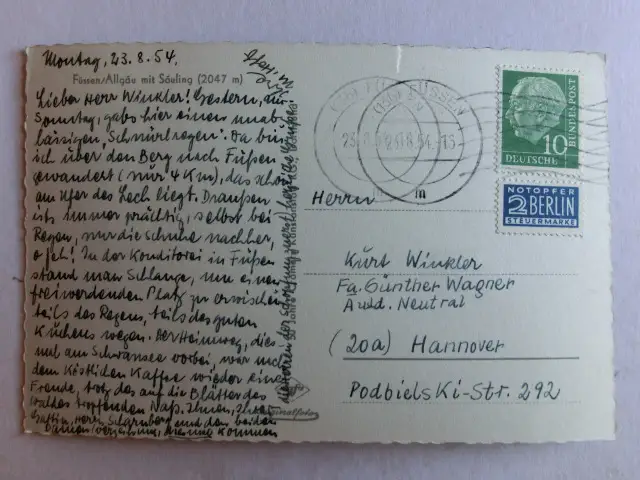 Montag, 23.8.54.
Füssen/Allgäu mit Säuling (2047 m)
Lieber Herr Winkler! Gestern, am
Sonntag, gabs hier einen unab-
lässigen „Schnürlregen". Da bin
ich über den Berg nach Füßen
gewandert (nur 4 Km), das schon
am Ufer des Lech liegt. Draußen
ists immer prächtig, selbst bei
Regen, nur die Schuhe nachher,
o jeh! In der Konditorei in Füßen
stand man Schlange, um einen
freiwerdenden Platz zu erwischen
teils des Regens, teils des guten
Kuchens wegen. Der Heimweg, dies-
mal am Schwansee vorbei, war nach
dem Köstlichen Kaffee wieder eine
Freude, trotz des auf die Blätter des
Waldes tropfenden Naß. Ihnen, Ihrer
Gattin, Herrn Scharnberg und den beiden
Damen
FÜSSEN
23.8.54.-16
m
10
DEUTSCHE
BUNDESPOST
NOTOPFER
2 BERLIN
STEUERMARKE
Herrn
Kurt Winkler
Fa. Günther Wagner
Ausld. Neutral
(20a) Hannover
Podbielski-Str. 292